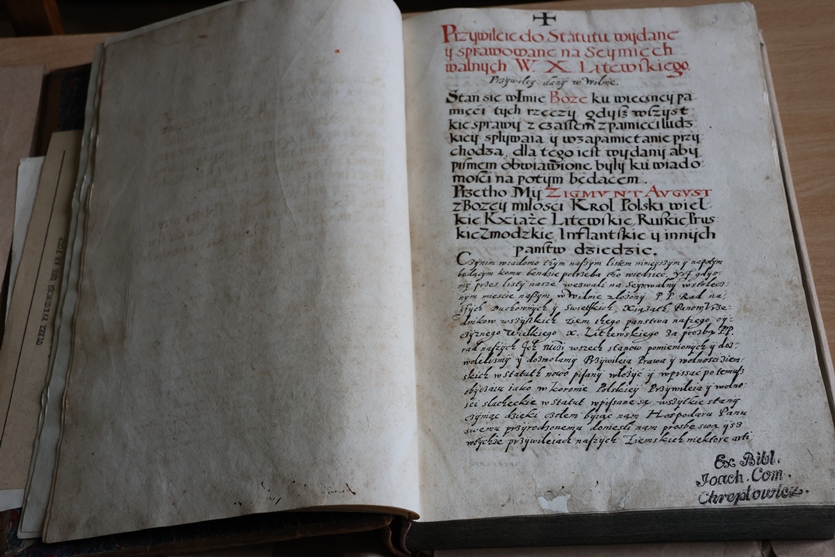 Przywileie do Statutu wydane
y sprawowane na Seymiech
walnych W X Litewskiego.
Przywiley dany w Wilnie.
Stan sie wImie Boze ku wieczney pa
mieci tych rzeczy, gdysz wszyst
kie sprawy z czasem z pamieci ludz
kiey splywaia y wzapamietanie przy
chodza, dla tego iest wydany aby
pismem obwiawione byly ku wiado
mosci na potym bedacem.
Przetho My ZIGMVNT AVGVST
z Bozey milosci Krol Polski wiel
kie Kxiaze Litewskie Ruskie Prus
kie Zmodzkie Inflantskie y innych
panstw dziedzic.
Czynim wiadomo tym naszym listem nineyszym y napotym
bedacym komu bendzie potrzeba tho wiedziec, ysz gdys
my przez listy nasze wezwali na Seym walny wstolecz
nym miescie naszym w Wilnie zlozony P P Rad na
szych Duchownych y Swietskich, Xiazath Panow
dnikow wszystkich ziem thego panstwa naszego oy
czyznego Wielkiego X. Litewskiego za prozby PP
rad naszych Ich Mczi wszech stanow pomienionych y doz
wolilismy y dozwolamy Przywileia Prawa y wolnosci ziem
skich w statuth nowo pisany wlozyc y wpissac potemusz
obyczaiu iako w koronie Polskiey Przywileia y wolno
sci slacheckie w statut wpissane są, wszytkie stany
czyniąc dzieki czolem biyąc nam Hospodaru Panu
swemu przyrodzonemu doniesli nam prosbe swą ysz
wtychze przywileiach naszych Ziemskich niektore arti
Ex Bibl.
Joach. Com.
Chreptowicz.